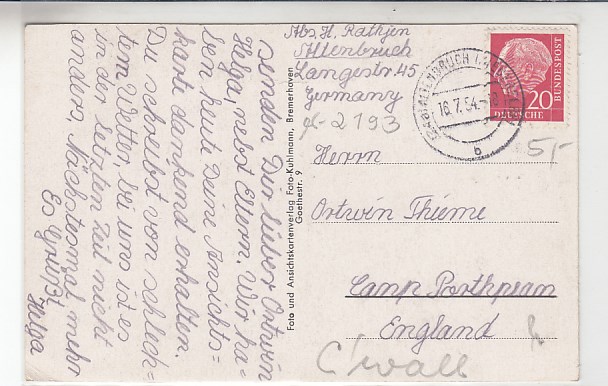 senden Dir lieber Ortwin
Helga, nebst Eltern. Wir ha=
ben heute Deine Ansichts=
karte dankend erhalten.
Du schreibst von schlech=
tem Wetter, bei uns ist es
in der letzten Zeit nicht
anders. Nächstesmal mehr
Es grüßt
Helga
Foto und Ansichtskartenverlag Foto-Kuhlmann, Bremerhaven
Goethestr. 9
Abs. H. Rathjen
Altenbruch
Langestr. 45
Germany
2193
16.7.54
b
20
DEUTSCHE
BUNDESPOST
5,-
Herrn
Ortwin Thieme
Camp Porthpean
England
C'wall